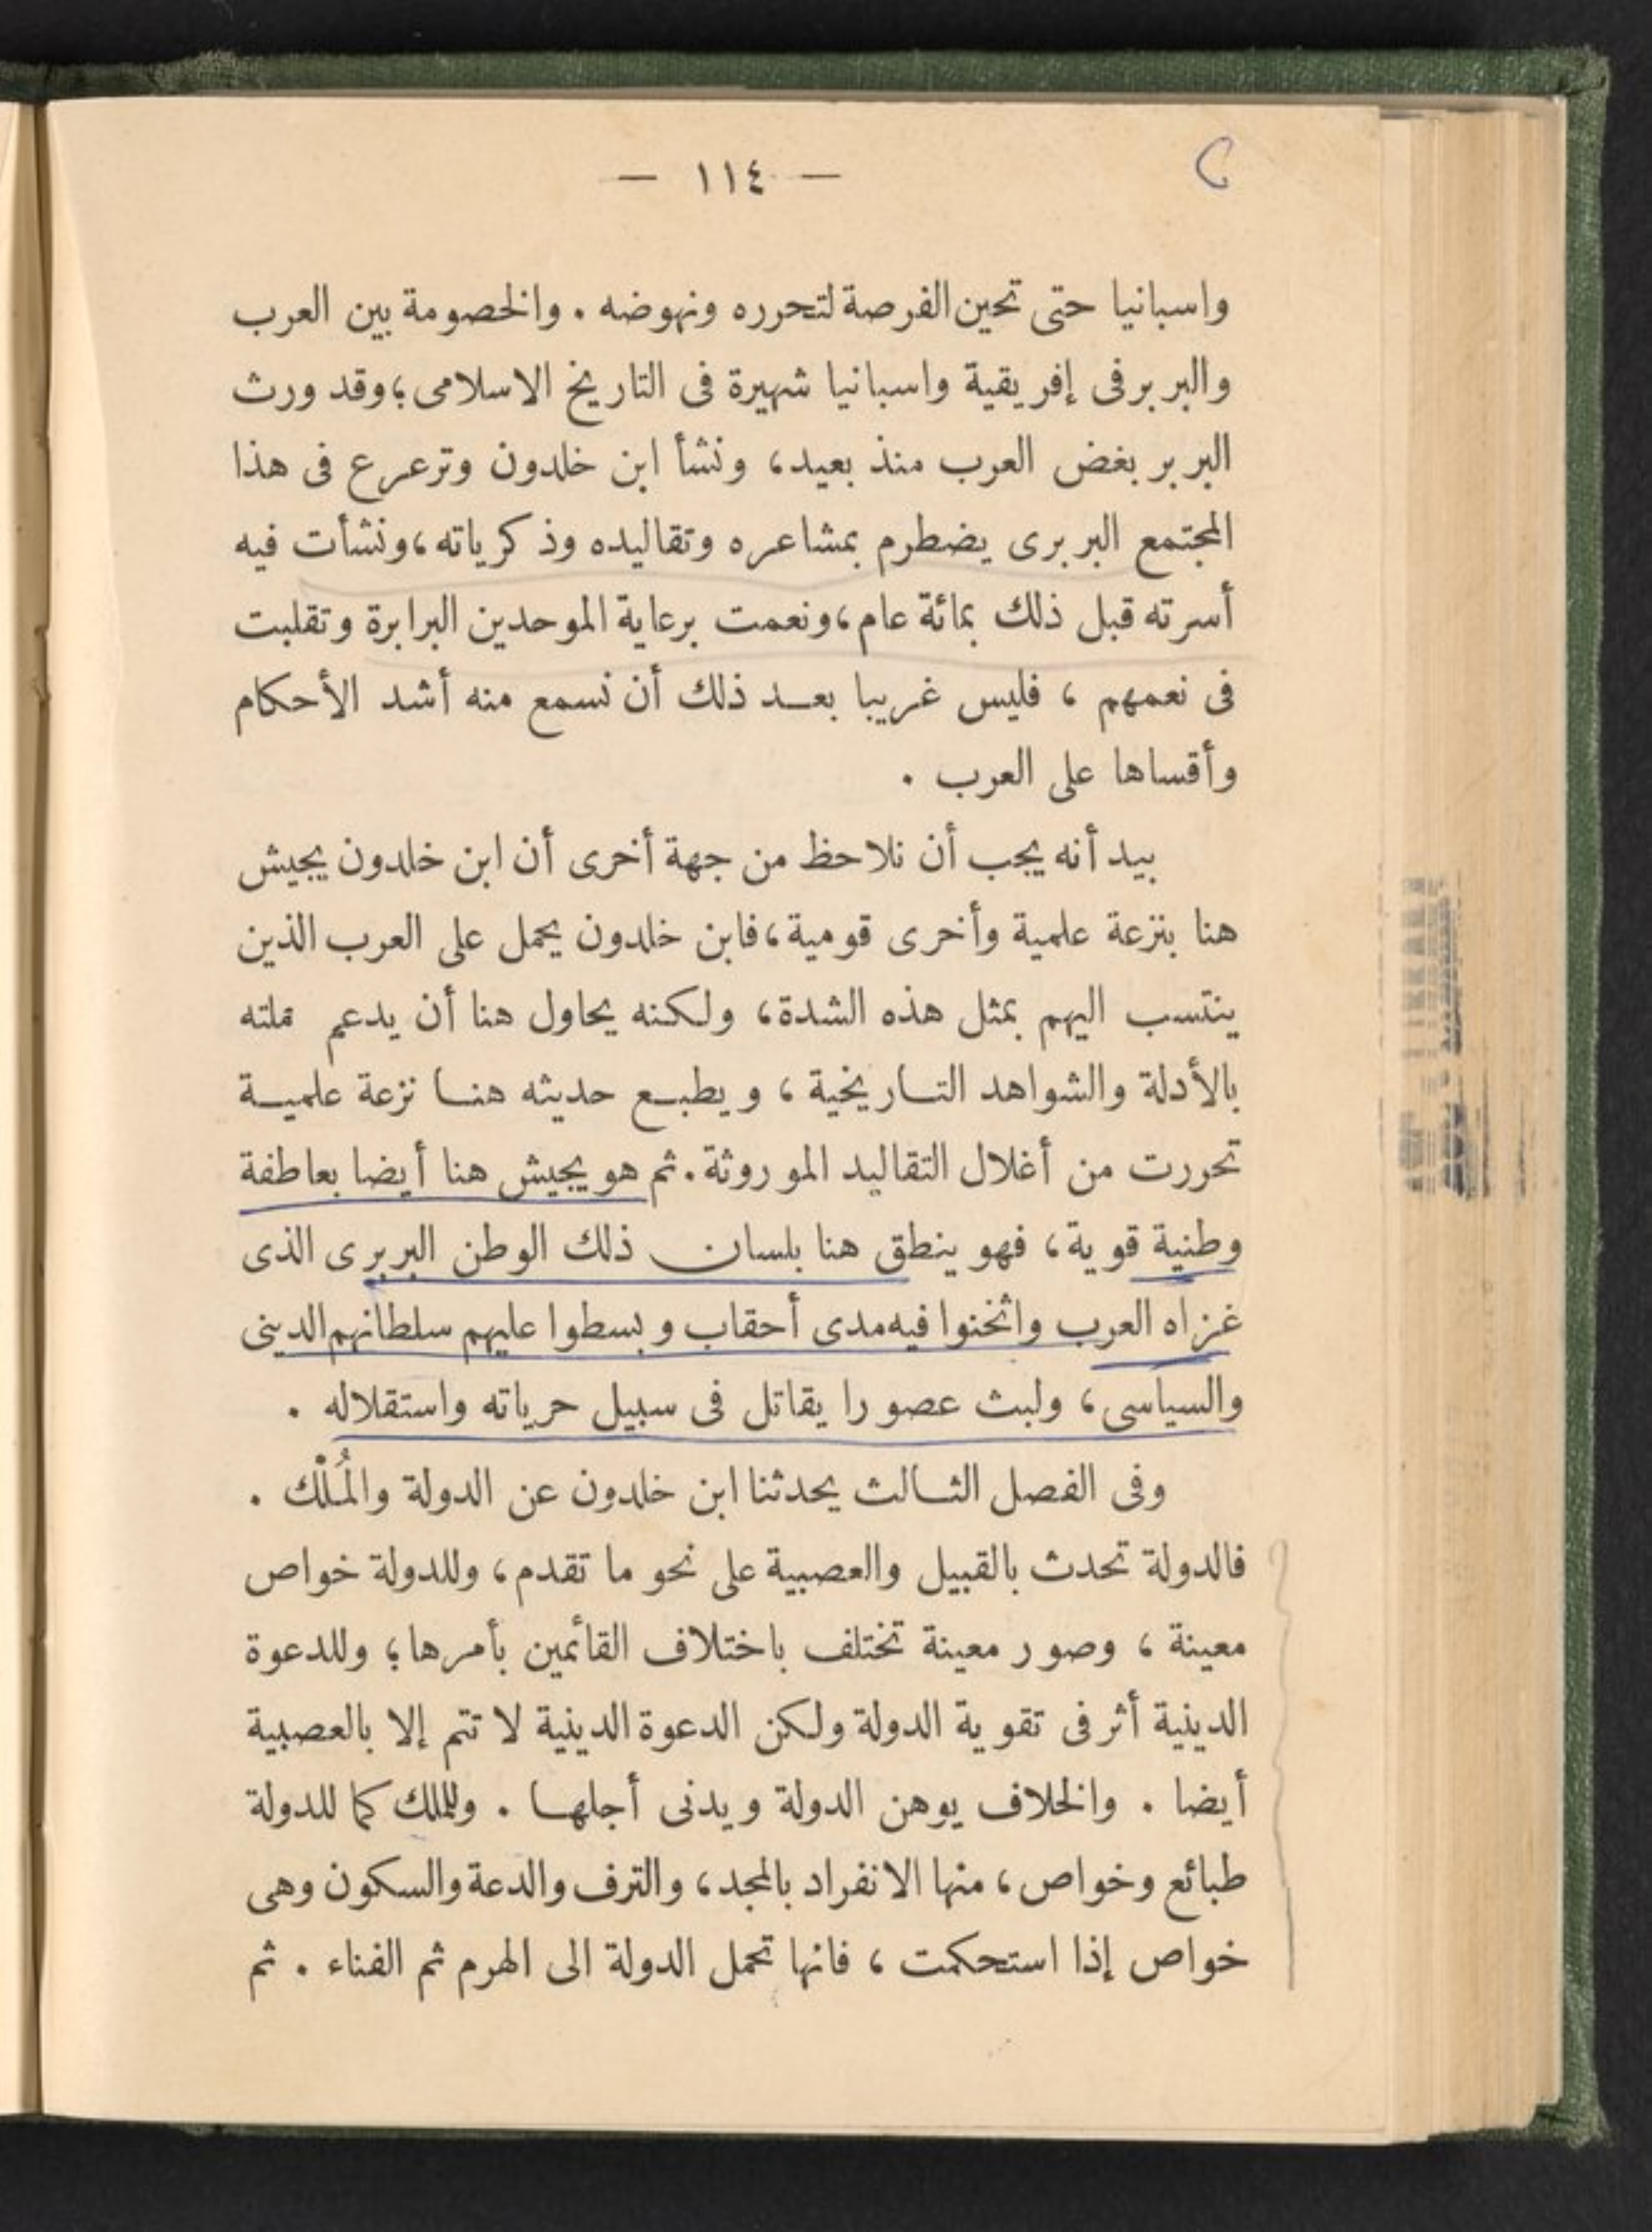 — ١١٤ —
واسبانيا حتى تحين الفرصة لتحرره ونهوضه . والخصومة بين العرب
والبربر فى إفريقية واسبانيا شهيرة فى التاريخ الاسلامى ؛ وقد ورث
البربر بغض العرب منذ بعيد ، ونشأ ابن خلدون وترعرع فى هذا
المجتمع البربرى يضطرم بمشاعره وتقاليده وذكرياته ، ونشأت فيه
أسرته قبل ذلك بمائة عام ، ونعمت برعاية الموحدين البرابرة وتقلبت
فى نعمهم ، فليس غريبا بعد ذلك أن نسمع منه أشد الأحكام
وأقساها على العرب .
بيد أنه يجب أن نلاحظ من جهة أخرى أن ابن خلدون يجيش
هنا بنزعة علمية وأخرى قومية ، فابن خلدون يحمل على العرب الذين
ينتسب اليهم بمثل هذه الشدة ، ولكنه يحاول هنا أن يدعم
بالأدلة والشواهد التاريخية ، ويطبع حديثه هنا نزعة علمية
تحررت من أغلال التقاليد الموروثة . ثم هو يجيش هنا أيضا بعاطفة
وطنية قوية ، فهو ينطق هنا بلسان ذلك الوطن البربرى الذى
غزاه العرب واثخنوا فيه مدى أحقاب وبسطوا عليهم سلطانهم الدينى
والسياسى ، ولبث عصورا يقاتل فى سبيل حرياته واستقلاله .
وفى الفصل الثالث يحدثنا ابن خلدون عن الدولة والمُلْك .
فالدولة تحدث بالقبيل والعصبية على نحو ما تقدم ، وللدولة خواص
معينة ، وصور معينة تختلف باختلاف القائمين بأمرها ؛ وللدعوة
الدينية أثر فى تقوية الدولة ولكن الدعوة الدينية لا تتم إلا بالعصبية
أيضا . والخلاف يوهن الدولة ويدنى أجلها . وللملك كما للدولة
طبائع وخواص ، منها الانفراد بالمجد ، والترف والدعة والسكون وهى
خواص إذا استحكمت ، فانها تحمل الدولة الى الهرم ثم الفناء . ثم